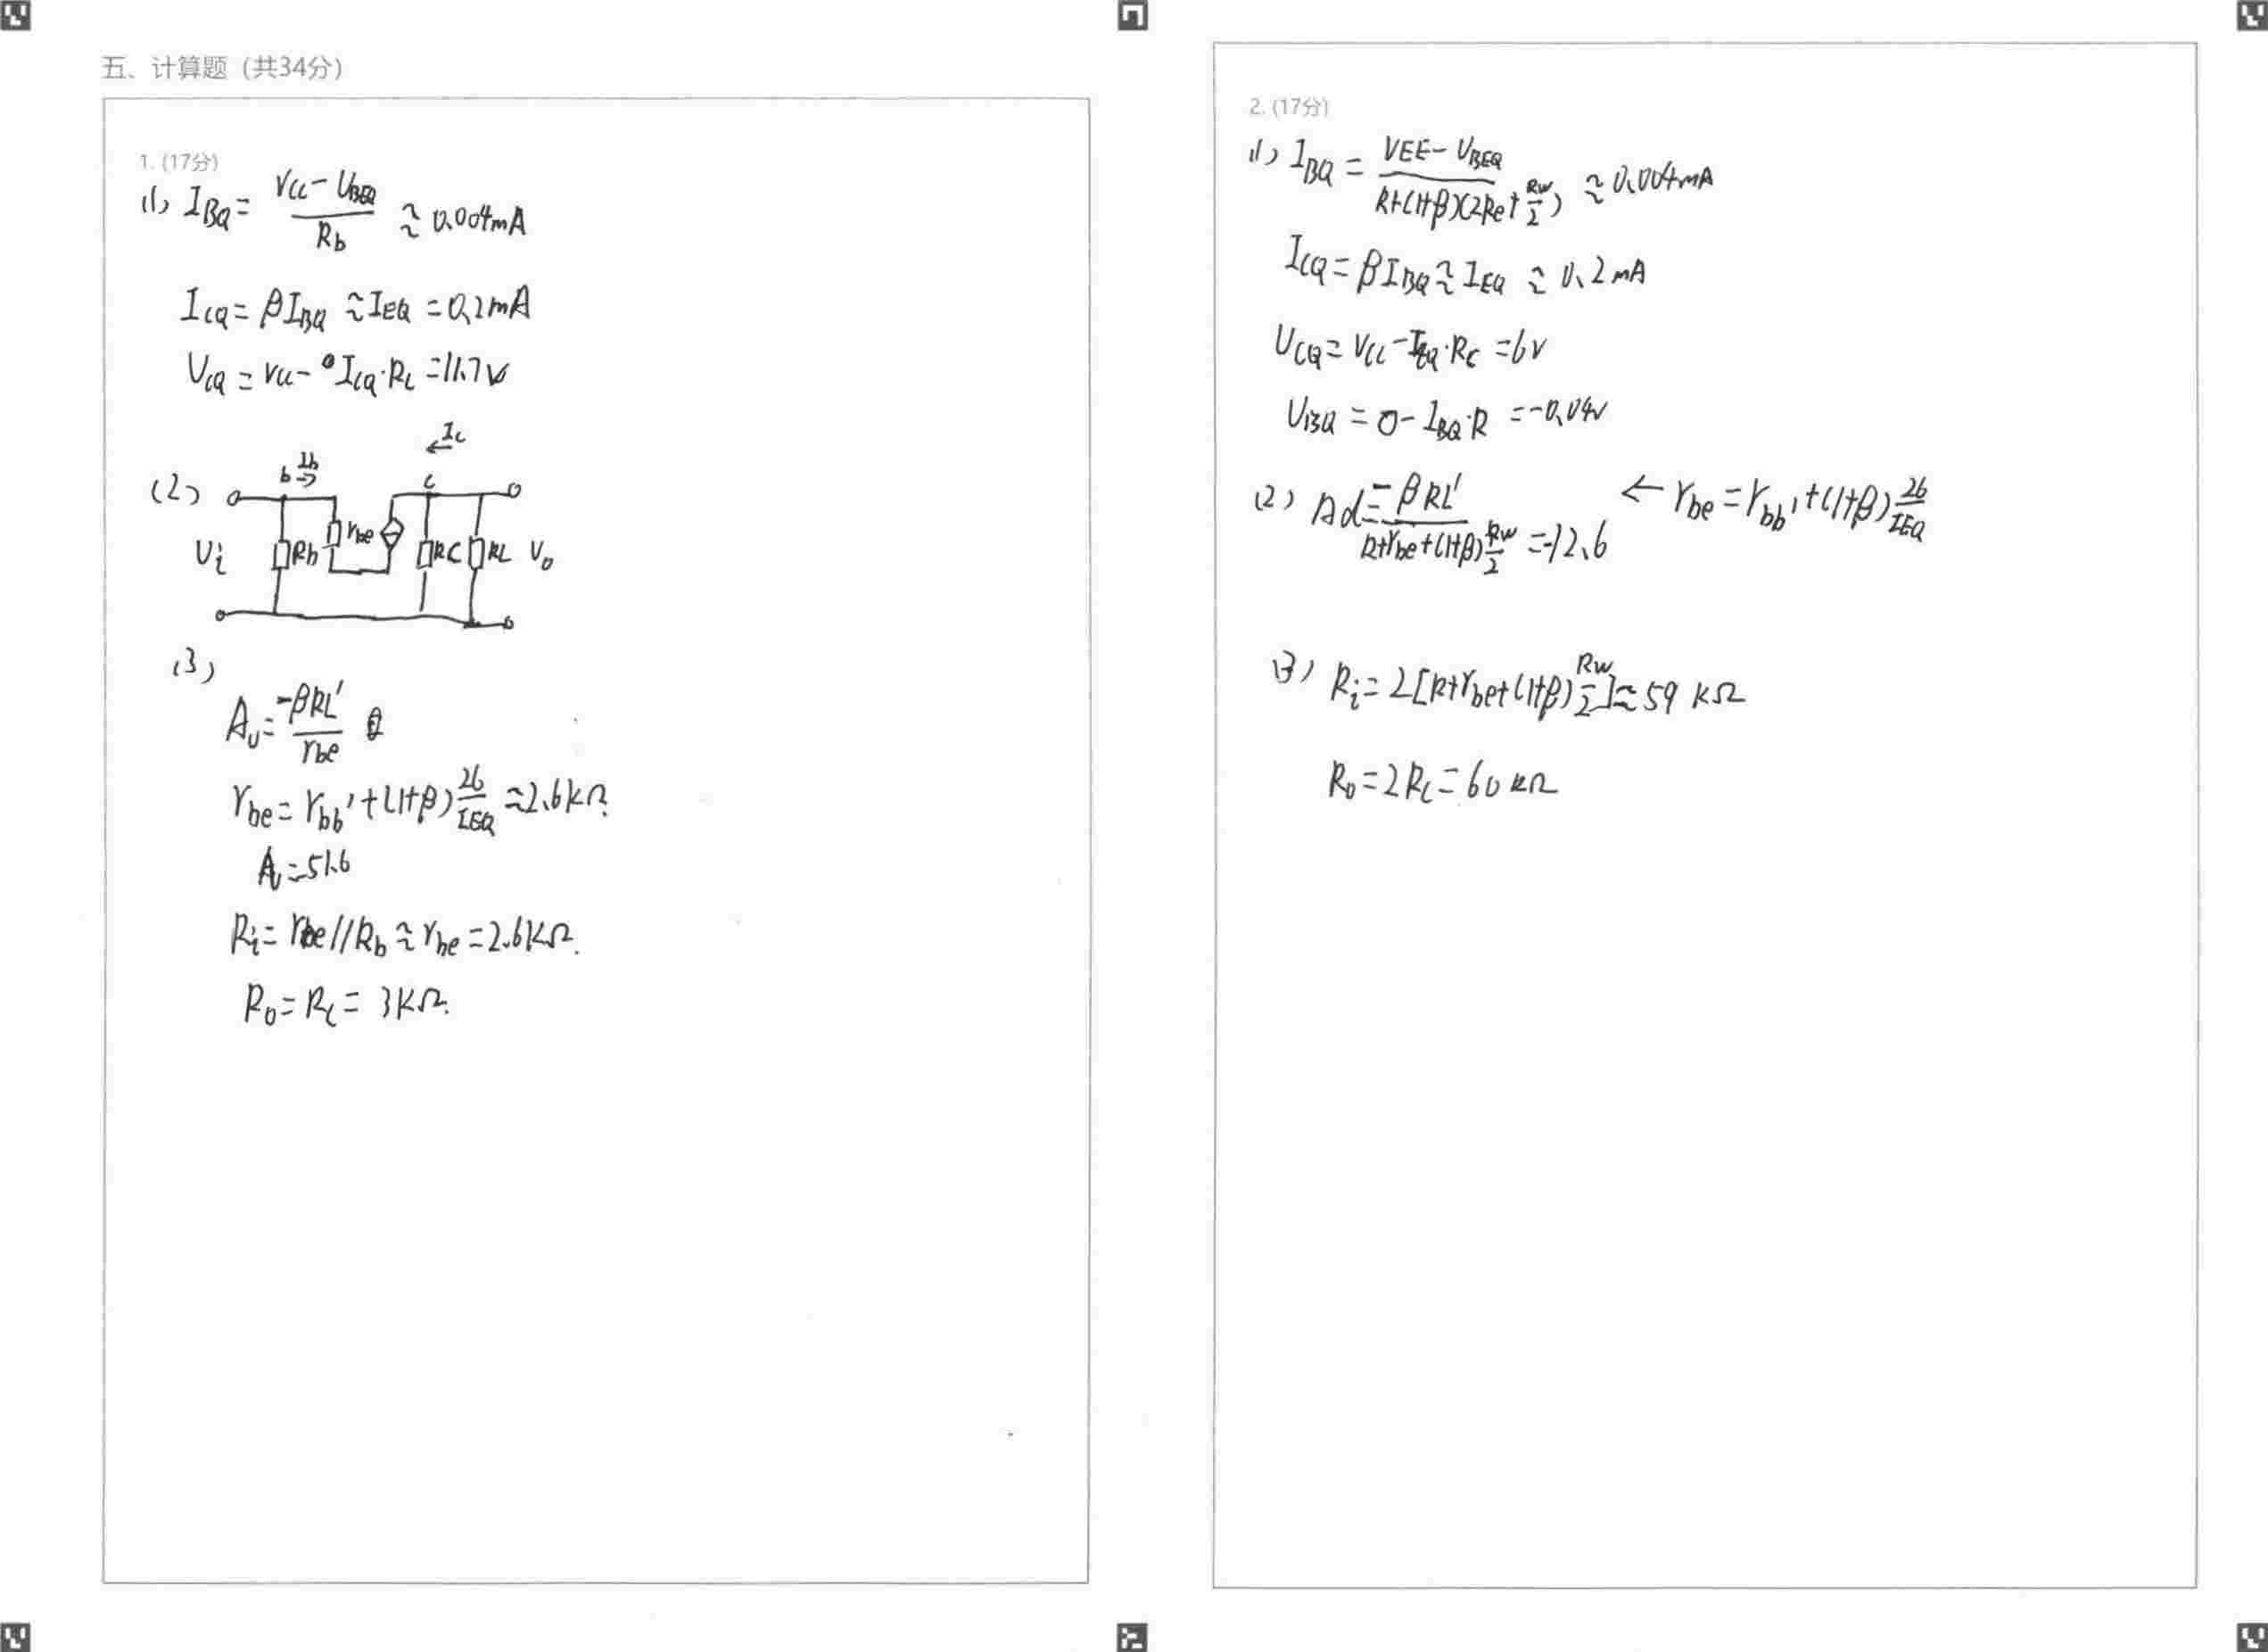 五、计算题（共34分）
1. (17分)
(1) IBQ = (VCC - UBEQ)/Rb ≈ 0.004mA
ICQ = βIBQ ≈ IEQ = 0.2mA
UCQ = VCC - ICQ·RC = 11.7V
(2)
Ic
b Ib c
Ui Rb rbe RC RL Uo
(3)
Au = -βRL'/rbe
rbe = rbb' + (1+β) 26/IEQ ≈ 2.6kΩ.
Au = -51.6
Ri = rbe // Rb ≈ rbe = 2.6KΩ.
Ro = RC = 3KΩ.
2. (17分)
(1) IBQ = (VEE - UBEQ)/(R+(1+β)(2Re+RW/2)) ≈ 0.004mA
ICQ = βIBQ ≈ IEQ ≈ 0.2mA
UCQ = VCC - ICQ·RC = 6V
UBQ = 0 - IBQ·R = -0.04V
(2) Ad = -βRL'/(R+rbe+(1+β)RW/2) = -12.6 ← rbe = rbb' + (1+β) 26/IEQ
(3) Ri = 2[R+rbe+(1+β)RW/2] ≈ 59 KΩ
Ro = 2RC = 60 KΩ